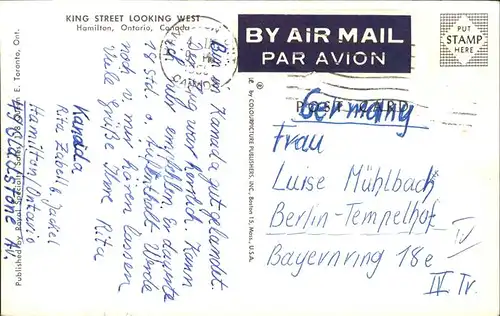 KING STREET LOOKING WEST
Hamilton, Ontario, Canada
BY AIR MAIL
PAR AVION
PUT
STAMP
HERE
POST CARD
Germany
Frau
Luise Mühlbach
Berlin-Tempelhof
Bayernring 18e
IV Tr.
Bin in Kanada gut gelandet.
Der Flug war herrlich. Kann
ich nur empfehlen. Er dauerte
18 Std. o. Aufenthalt. Werde
noch v. mir hören lassen
Viele Grüße Ihre Rita
Kanada
Rita Zabell b. Jackel
Hamilton/Ontario
49 Gladstone Av.
Published by Royal Specialty Sales, E. Toronto, Ont.
by COLOURPICTURE PUBLISHERS, INC., Boston 15, Mass., U.S.A.